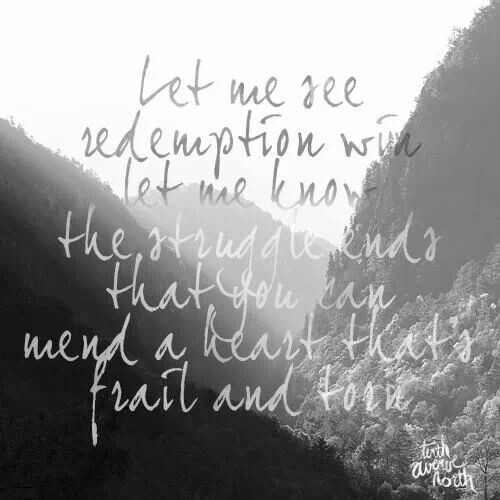 Let me see
redemption win
let me know
the struggle ends
that you can
mend a heart that's
frail and torn
tenth
avenue
north